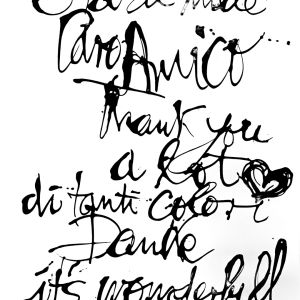 Caro Amico...
Thank you
a lot
di tanti colori
it's wonderful